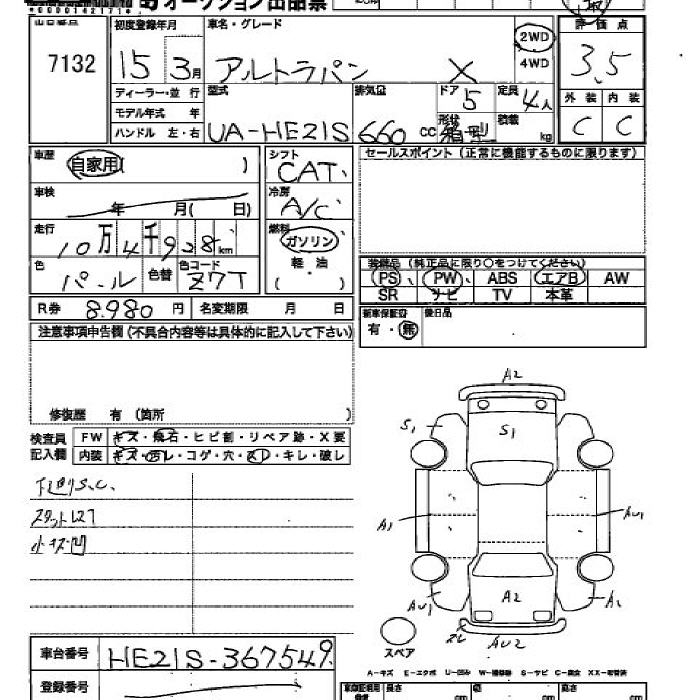 *0000142171*
オークション出品票
出品番号 初度登録年月 車名・グレード 評価点
7132 15 3月 アルトラパン X 2WD 3.5
4WD
ディーラー・並行 型式 排気量 ドア 5 定員 4人 外装 内装
モデル年式 年 形状 積載 C C
ハンドル 左・右 UA-HE21S 660 CC 箱型 kg
車歴 自家用( ) シフト CAT セールスポイント (正常に機能するものに限ります)
車検 年 月( 日) 冷房 A/C
走行 10万4千928km 燃料 ガソリン
軽油
( )
色 パール 色替 色コード Z7T
装備品 (純正品に限り○をつけてください)
PS PW ABS エアB AW
SR ナビ TV 本革
R券 8,980 円 名変期限 月 日
新車保証書 後日品
有・無
注意事項申告欄 (不具合内容等は具体的に記入して下さい)
修復歴 有 (箇所 )
検査員 FW キズ・飛石・ヒビ割・リペア跡・X要
記入欄 内装 キズ・汚レ・コゲ・穴・スレ・キレ・破レ
下廻りS.C.
スタットレス7
小キズ凹
A2
S1 S1
A1 AU1
AU1 A2 A1
AU2
スペア
車台番号 HE21S-367549
登録番号
A-キズ E-エクボ U-凹み W-補修跡 S-サビ C-腐食 XX-交換済
長さ cm cm cm